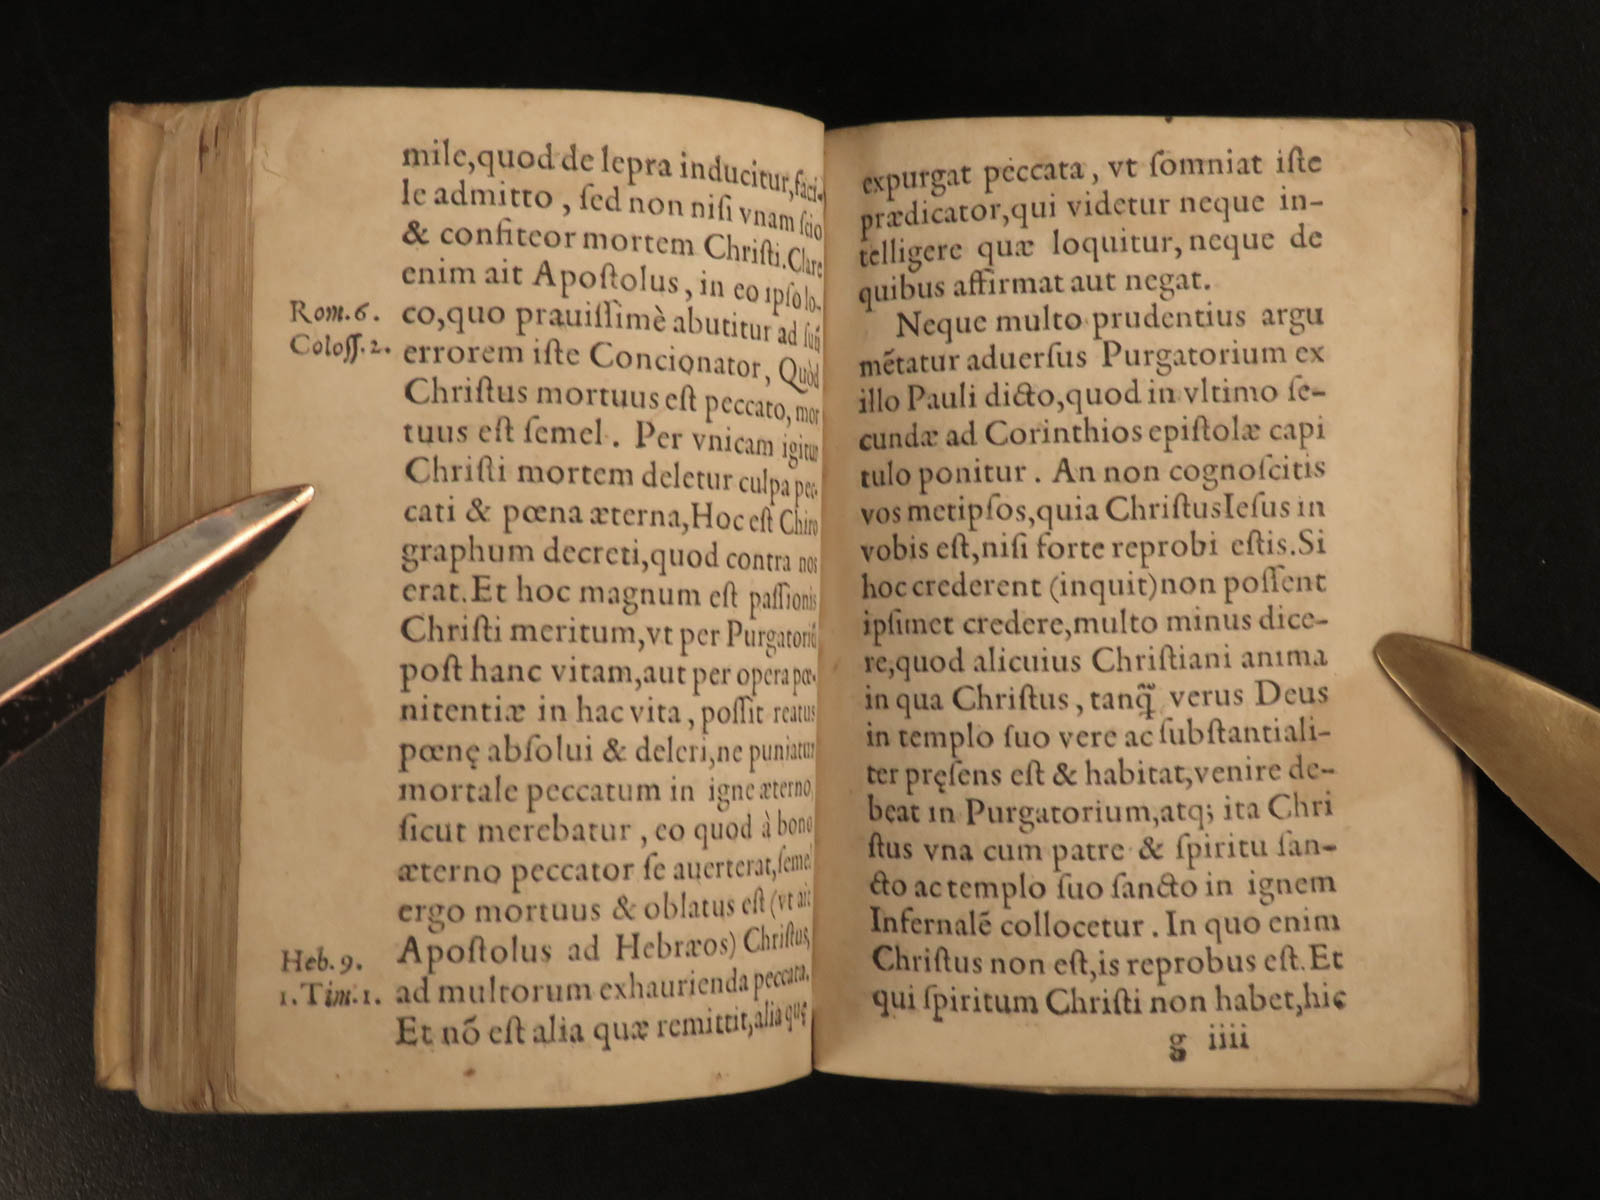 mile,quod de lepra inducitur,faci-
le admitto , ſed non niſi vnam ſcio
& confiteor mortem Chriſti.Clare
enim ait Apoſtolus, in eo ipſo lo-
Rom.6. co,quo prauiſſimè abutitur ad ſuũ
Coloſſ.2. errorem iſte Concionator, Quòd
Chriſtus mortuus eſt peccato, mor
tuus eſt ſemel. Per vnicam igitur
Chriſti mortem deletur culpa pec-
cati & pœna æterna,Hoc eſt Chiro
graphum decreti,quod contra nos
erat.Et hoc magnum eſt paſſionis
Chriſti meritum,vt per Purgatoriũ
poſt hanc vitam,aut per opera pœ-
nitentiæ in hac vita, poſſit reatus
pœnę abſolui & deleri,ne puniatur
mortale peccatum in igne æterno,
ſicut merebatur , eo quod à bono
æterno peccator ſe auerterat,ſemel
ergo mortuus & oblatus eſt (vt ait
Heb.9. Apoſtolus ad Hebræos) Chriſtus,
1.Tim.1. ad multorum exhaurienda peccata.
Et nõ eſt alia quæ remittit,alia quę
expurgat peccata, vt ſomniat iſte
prædicator,qui videtur neque in-
telligere quæ loquitur, neque de
quibus affirmat aut negat.
Neque multo prudentius argu
mẽtatur aduerſus Purgatorium ex
illo Pauli dicto,quod in vltimo ſe-
cundæ ad Corinthios epiſtolæ capi
tulo ponitur. An non cognoſcitis
vos metipſos,quia Chriſtus Ieſus in
vobis eſt,niſi forte reprobi eſtis.Si
hoc crederent (inquit)non poſſent
ipſimet credere,multo minus dice-
re,quod alicuius Chriſtiani anima
in qua Chriſtus , tanq̃ verus Deus
in templo ſuo vere ac ſubſtantiali-
ter pręſens eſt & habitat,venire de-
beat in Purgatorium,atq; ita Chri
ſtus vna cum patre & ſpiritu ſan-
cto ac templo ſuo ſancto in ignem
Infernalẽ collocetur. In quo enim
Chriſtus non eſt,is reprobus eſt.Et
qui ſpiritum Chriſti non habet,hic
g iiii